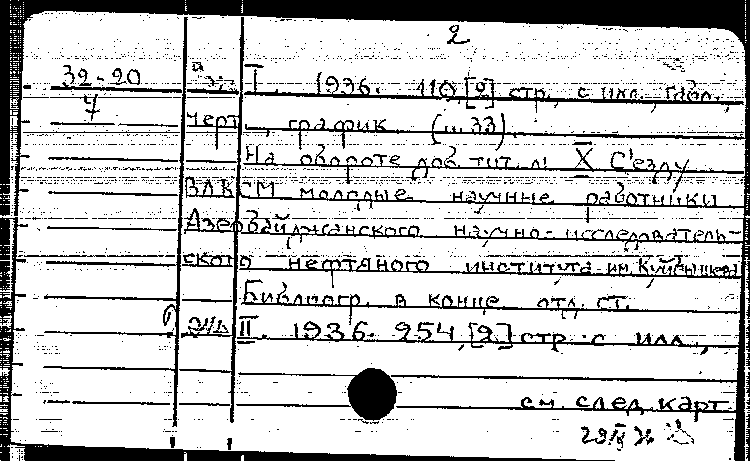 2
32-20
7
I. 1936. 110,[2] стр., с илл., табл.,
черт., график. (ц. 33).
На обороте доб. тит. л: X С'езду
ВЛКСМ молодые научные работники
Азербайджанского научно-исследователь-
ского нефтяного института им. Куйбышева
Библиогр. в конце отд. ст.
II. 1936. 254,[2] стр. с илл.,
см. след. карт.